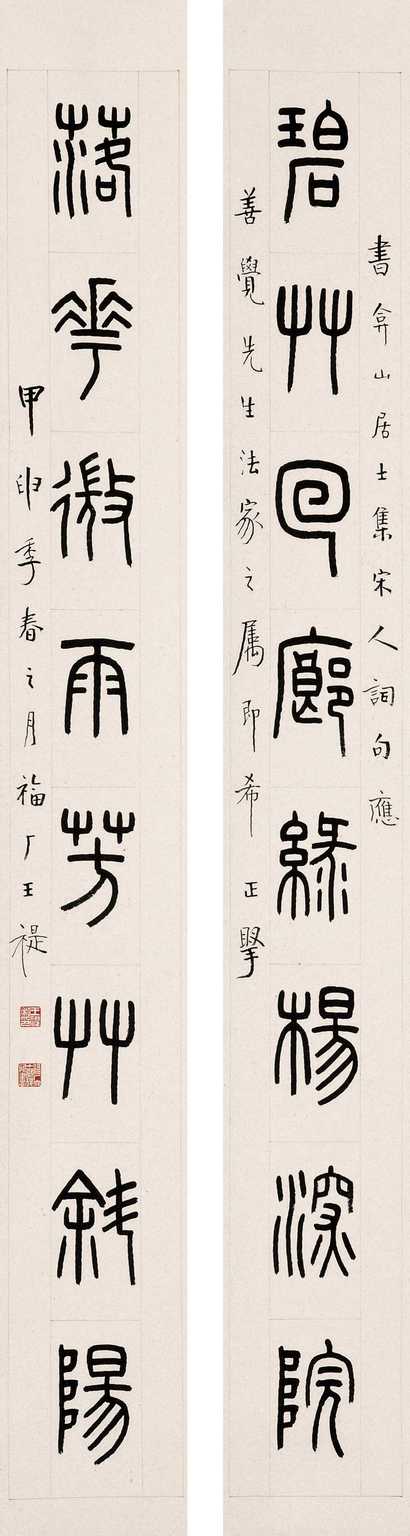 書弇山居士集宋人詞句應
碧艸回廊綠楊深院
善覺先生法家之屬即希正掔
落華微雨芳艸斜陽
甲申季春之月福厂王禔